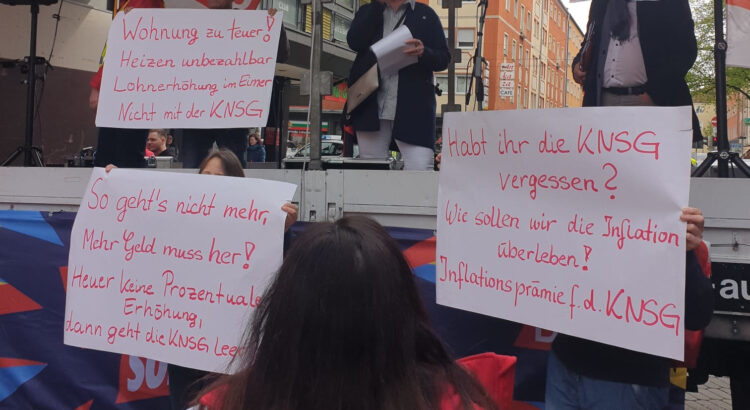 Wohnung zu teuer!
Heizen unbezahlbar
Lohnerhöhung im Eimer
Nicht mit der KNSG
So geht's nicht mehr,
Mehr Geld muss her!
Heuer keine Prozentuale
Erhöhung,
dann geht die KNSG Lee
Habt ihr die KNSG
vergessen?
Wie sollen wir die Inflation
überleben!
Inflationsprämie f.d. KNSG
CAFE
-au